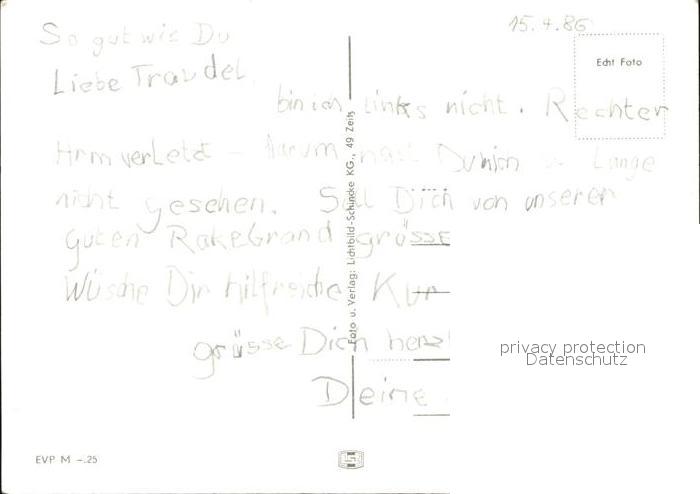 15.4.86
So gut wie Du
Liebe Traudel,
Echt Foto
bin ich links nicht. Rechter
Arm verletzt – darum hast Du mich so Lange
nicht gesehen. Soll Dich von unserer
guten Rakebrand grüsse
Wüsche Dir hilfreiche Kur
grüsse Dich herzl
Deine
Foto u. Verlag: Lichtbild-Schincke KG., 49 Zeitz
EVP M –.25
privacy protection
Datenschutz